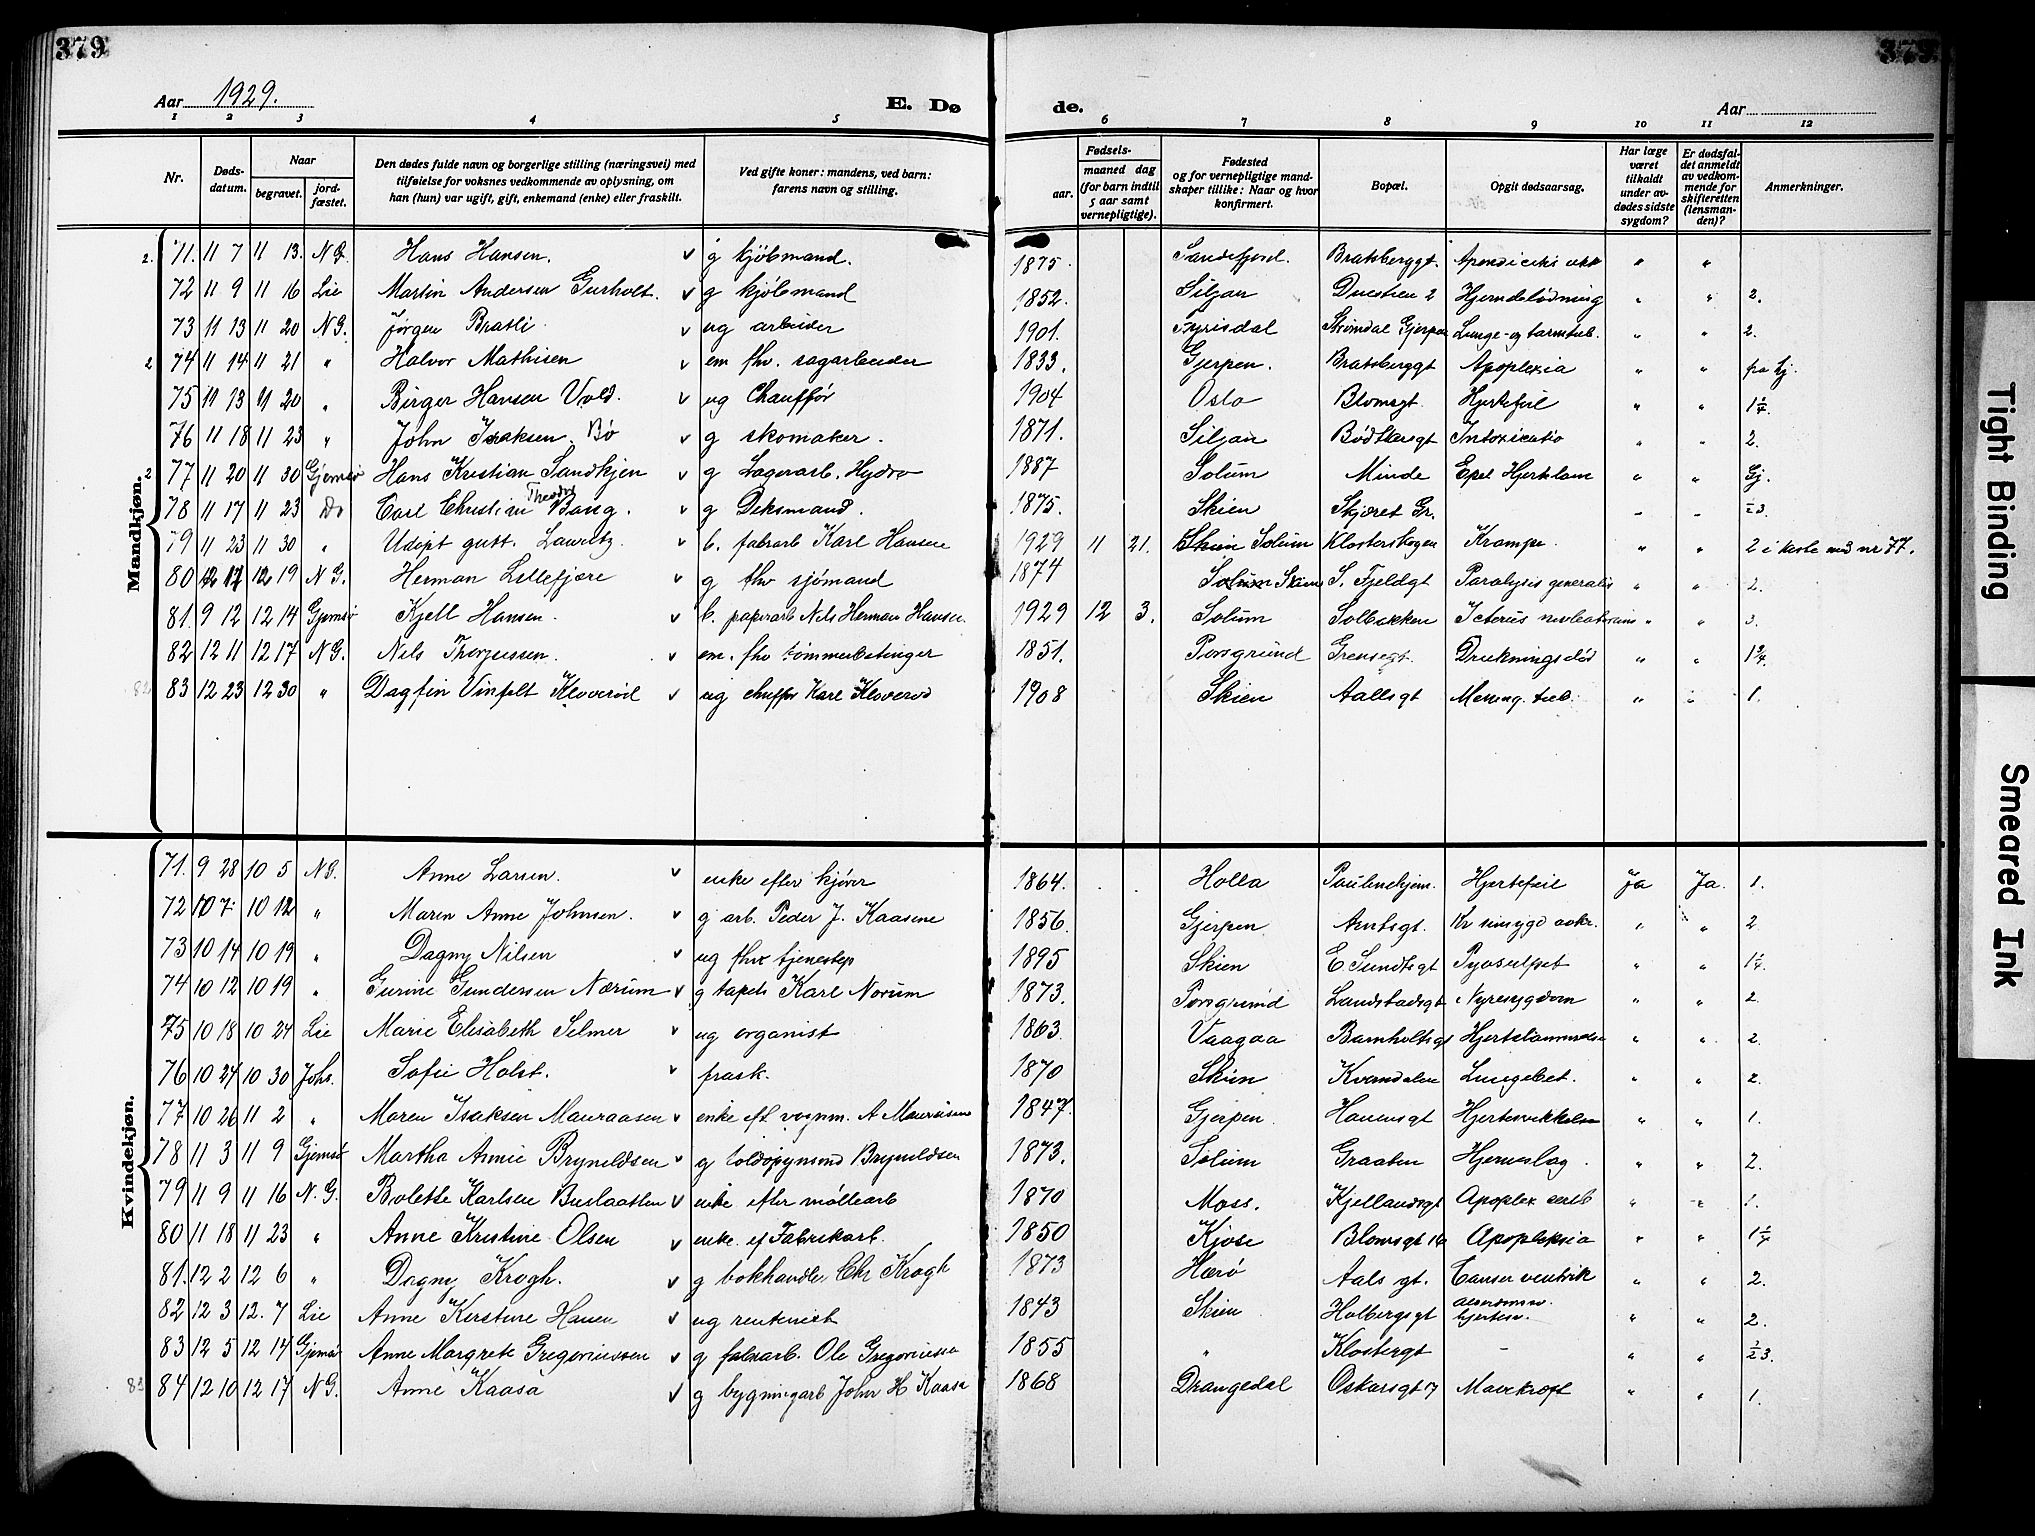 379
379
Aar 1929.
E. Dø
de.
Aar
1 2 3 4 5 6 7 8 9 10 11 12
Nr.
Døds-datum.
Naar
begravet.
jord-fæstet.
Den dødes fulde navn og borgerlige stilling (næringsvei) med
tilføielse for voksnes vedkommende av oplysning, om
han (hun) var ugift, gift, enkemand (enke) eller fraskilt.
Ved gifte koner: mandens, ved barn:
farens navn og stilling.
Fødsels-
aar.
maaned dag
(for barn indtil
5 aar samt
vernepligtige).
Fødested
og for vernepligtige mand-
skaper tillike: Naar og hvor
konfirmert.
Bopæl.
Opgit dødsaarsag.
Har læge
været
tilkaldt
under av-
dødes sidste
sygdom?
Er dødsfal-
det anmeldt
av vedkom-
mende for
skifteretten
(lensman-
den)?
Anmerkninger.
Mandkjøn.
2. 71. 11 7 11 13. N G. Hans Hansen. v g kjøbmand. 1875. Sandefjord. Bratsberggt. " "
72 11 9 11 16 Lie Martin Andersen Gurholt. v g kjøbmand 1852. Siljan 2 Hjerneblødning " " 2.
73 11 13 11 20 N G. Jørgen Bratli v ug arbeider 1901. Fyrisdal Gjerpen Lunge- og tarmtub. " " 2.
2 74 11 14 11 21 " Halvor Mathisen v em fhv. sagarbeider 1833. Gjerpen. Bratsberggt Apoplexia " "
75 11 13 11 20 " Birger Hansen Vold. v ug Chauffør 1904 Oslo Blomsgt. Hjertefeil " " 1¼.
76 11 18 11 23 " John Isaksen Bø v g skomaker. 1871. Siljan Bødtkersgt Intoxicatio " " 2.
2 77 11 20 11 30 Gjemsø Hans Kristian Sandkjen v g Lagerarb. Hydro 1887 Solum Minde Epel Hjertelam " " Gj.
78 11 17 11 23 Do Carl Christian Theodor Bang. v g Deksmand. 1875. Skien Skjæret Gr. " "
79 11 23 11 30 " Udøpt gutt. Lauritz. v b. fabrarb Karl Hansen 1929 11 21. Skien Solum Klosterskogen Krampe. " " 2 i kiste med nr 77.
80 12 12 19 N G. Herman Lillefjære v g fhv sjømand 1874 Solum Skien S. Fjeldgt Paralysis generalis " " 2.
81. 9 12 12 14 Gjemsø Kjell Hansen. v b. papirarb Nils Herman Hansen. 1929 12 3. Solum Solbakken Icterus " " 3.
82 12 11 12 17 N G. Nils Thorgussen. v em. fhv tømmerbetinger 1851. Porsgrund Grensegt. Drukningsdød " " 1¾.
83 12 23 12 30 " Dagfin Vinfelt Kloverød v ug chuffør Karl Kloverod 1908 Skien Aallsgt Mening. tub. " " 1.
Kvindekjøn.
71. 9 28 10 5 N G. Anne Larsen. v enke efter kjører 1864. Holla Paulinehjem. Hjertefeil Ja Ja. 1.
72 10 7. 10 12 " Maren Anne Johnsen. v g arb. Peder J. Kaasene 1856. Gjerpen Arntsgt. " " 2
73 10 14 10 19 " Dagny Nilsen v ug fhv tjenestep 1895 Skien E Sundtsgt Pyosulpet " " 1¼.
74 10 12 10 19 " Gurine Gundersen Nærum v g tapets Karl Norum 1873. Porsgrund Landstadsgt Nyresygdom " " 2.
75 10 18 10 24 Lie Marie Elisabeth Selmer v ug organist 1863 Vaagaa Bamholtsgt Hjertelammelse " " 2.
76 10 24 10 30 Johs. Sofie Holst. v frask. 1870 Skien Kverndalen Lungebet. " " 2.
77 10 26 11 2 " Maren Isaksen Mauraasen v enke eft vognm. A Mauraasen 1847. Gjerpen Hauensgt Hjertesvikkelse " " 1.
78 11 3 11 9 Gjemsø Martha Annie Bryneldsen v g toldopynsmd Bryneldsen 1873. Solum Graaten Hjerneslag. " " 2.
79 11 9 11 16 N. G. Bolette Karlsen Buslaatten v enke efter møllearb 1870 Moss. Kjellandsgt Apoplex cereb " " 1.
80 11 18 11 23 " Anne Kristine Olsen v enke. ef Fabrikarb. 1850 Kjose Blomsgt 16 Apopleksia " " 1¼
81. 12 2 12 6 " Dagny Krogh. v g bokhandler Chr Krogh 1873 Herø Aals gt. Canser ventrik " " 2.
82 12 3 12. 7 Lie Anne Kirstine Hauen v ug rentenist 1843 Skien Holbergsgt alderdomssv. hjertesv. " " 2.
83 12 5 12 14 Gjemsø Anne Margrete Gregoriussen v g fabrarb. Ole Gregoriussen 1855 " Klostergt - " "
84 12 10 12 17 N G. Anne Kaasa v g bygningarb John H Kaasa 1868 Drangedal Oskarsgt 7 Mavekræft " " 1.
Tight Binding
Smeared Ink